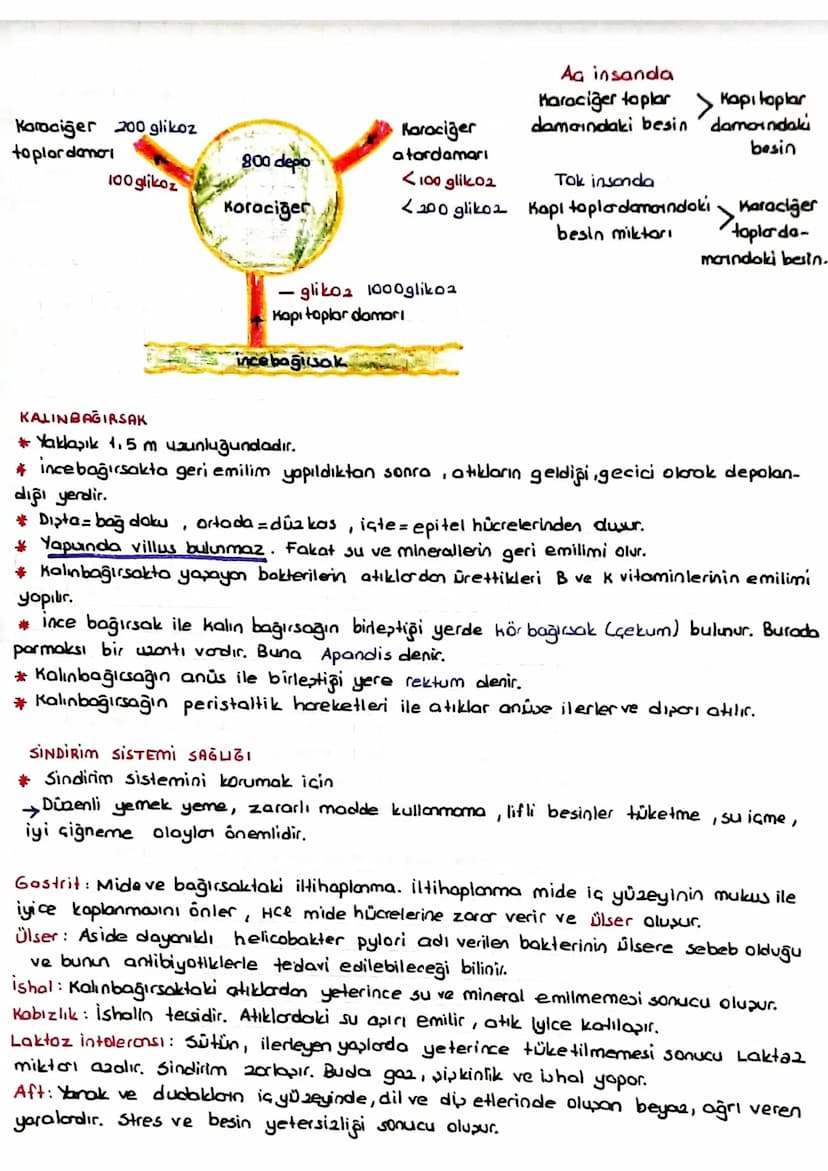 Aç insanda
Karaciğer toplar > Kapı toplar
damarındaki besin damarındaki
besin
Tok insanda
Kapı toplardamarındaki > Karaciğer
besin miktarı toplarda-
marındaki besin.
Karaciğer 200 glikoz
toplardamarı
100 glikoz
800 depo
Karaciğer
Karaciğer
atardamarı
<100 glikoz
<200 glikoz
– glikoz 1000 glikoz
Kapı toplar damarı
ince bağırsak
KALINBAĞIRSAK
* Yaklaşık 1,5 m uzunluğundadır.
* İncebağırsakta geri emilim yapıldıktan sonra, atıkların geldiği, geçici olarak depolan-
dığı yerdir.
* Dışta = bağ doku, ortada = düz kas, içte = epitel hücrelerinden oluşur.
* Yapısında villus bulunmaz. Fakat su ve minerallerin geri emilimi olur.
* Kalınbağırsakta yaşayan bakterilerin atıklardan ürettikleri B ve K vitaminlerinin emilimi
yapılır.
* İnce bağırsak ile kalın bağırsağın birleştiği yerde kör bağırsak (çekum) bulunur. Burada
parmaksı bir uzantı vardır. Buna Apandis denir.
* Kalınbağırsağın anüs ile birleştiği yere rektum denir.
* Kalınbağırsağın peristaltik hareketleri ile atıklar anüse ilerler ve dışarı atılır.
SİNDİRİM SİSTEMİ SAĞLIĞI
* Sindirim sistemini korumak için
→ Düzenli yemek yeme, zararlı madde kullanmama, lifli besinler tüketme, su içme,
iyi çiğneme olayları önemlidir.
Gastrit: Mide ve bağırsaktaki iltihaplanma. İltihaplanma mide iç yüzeyinin mukus ile
iyice kaplanmasını önler, HCl mide hücrelerine zarar verir ve ülser oluşur.
Ülser: Aside dayanıklı helicobakter pylori adı verilen bakterinin ülsere sebeb olduğu
ve bunun antibiyotiklerle tedavi edilebileceği bilinir.
İshal: Kalınbağırsaktaki atıklardan yeterince su ve mineral emilmemesi sonucu oluşur.
Kabızlık: İshalin tersidir. Atıklardaki su aşırı emilir, atık iyice katılaşır.
Laktoz intoleransı: Sütün, ilerleyen yaşlarda yeterince tüketilmemesi sonucu Laktaz
miktarı azalır. Sindirim zorlaşır. Buda gaz, şişkinlik ve ishal yapar.
Aft: Yanak ve dudakların iç yüzeyinde, dil ve diş etlerinde oluşan beyaz, ağrı veren
yaralardır. Stres ve besin yetersizliği sonucu oluşur.